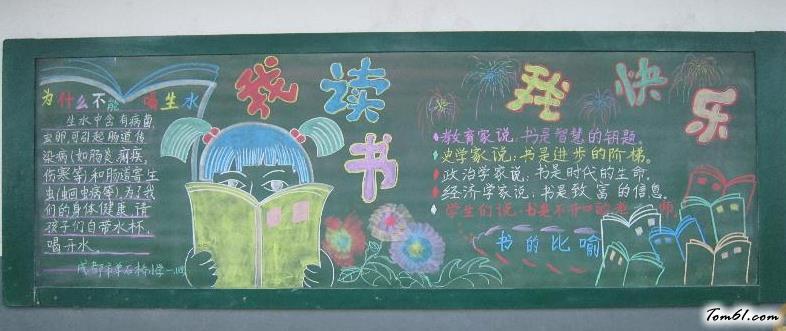 我读书
我快乐
为什么不能喝生水
生水中含有病菌、
虫卵,可引起肠道传
染病(如肠炎、痢疾、
伤寒等)和肠道寄生
虫(蛔虫病等),为了我
们的身体健康,请
孩子们自带水杯,
喝开水。
成都市
小学
教育家说:书是智慧的钥题。
史学家说:书是进步的阶梯。
政治学家说:书是时代的生命。
经济学家说:书是致富的信息。
学生们说:书是不开口的老师。
书的比喻
Tom61.com